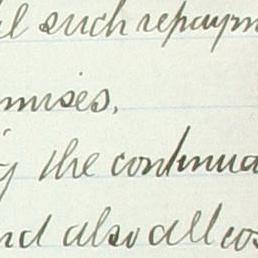 such repaym
mises,
the continua
nd also all cos